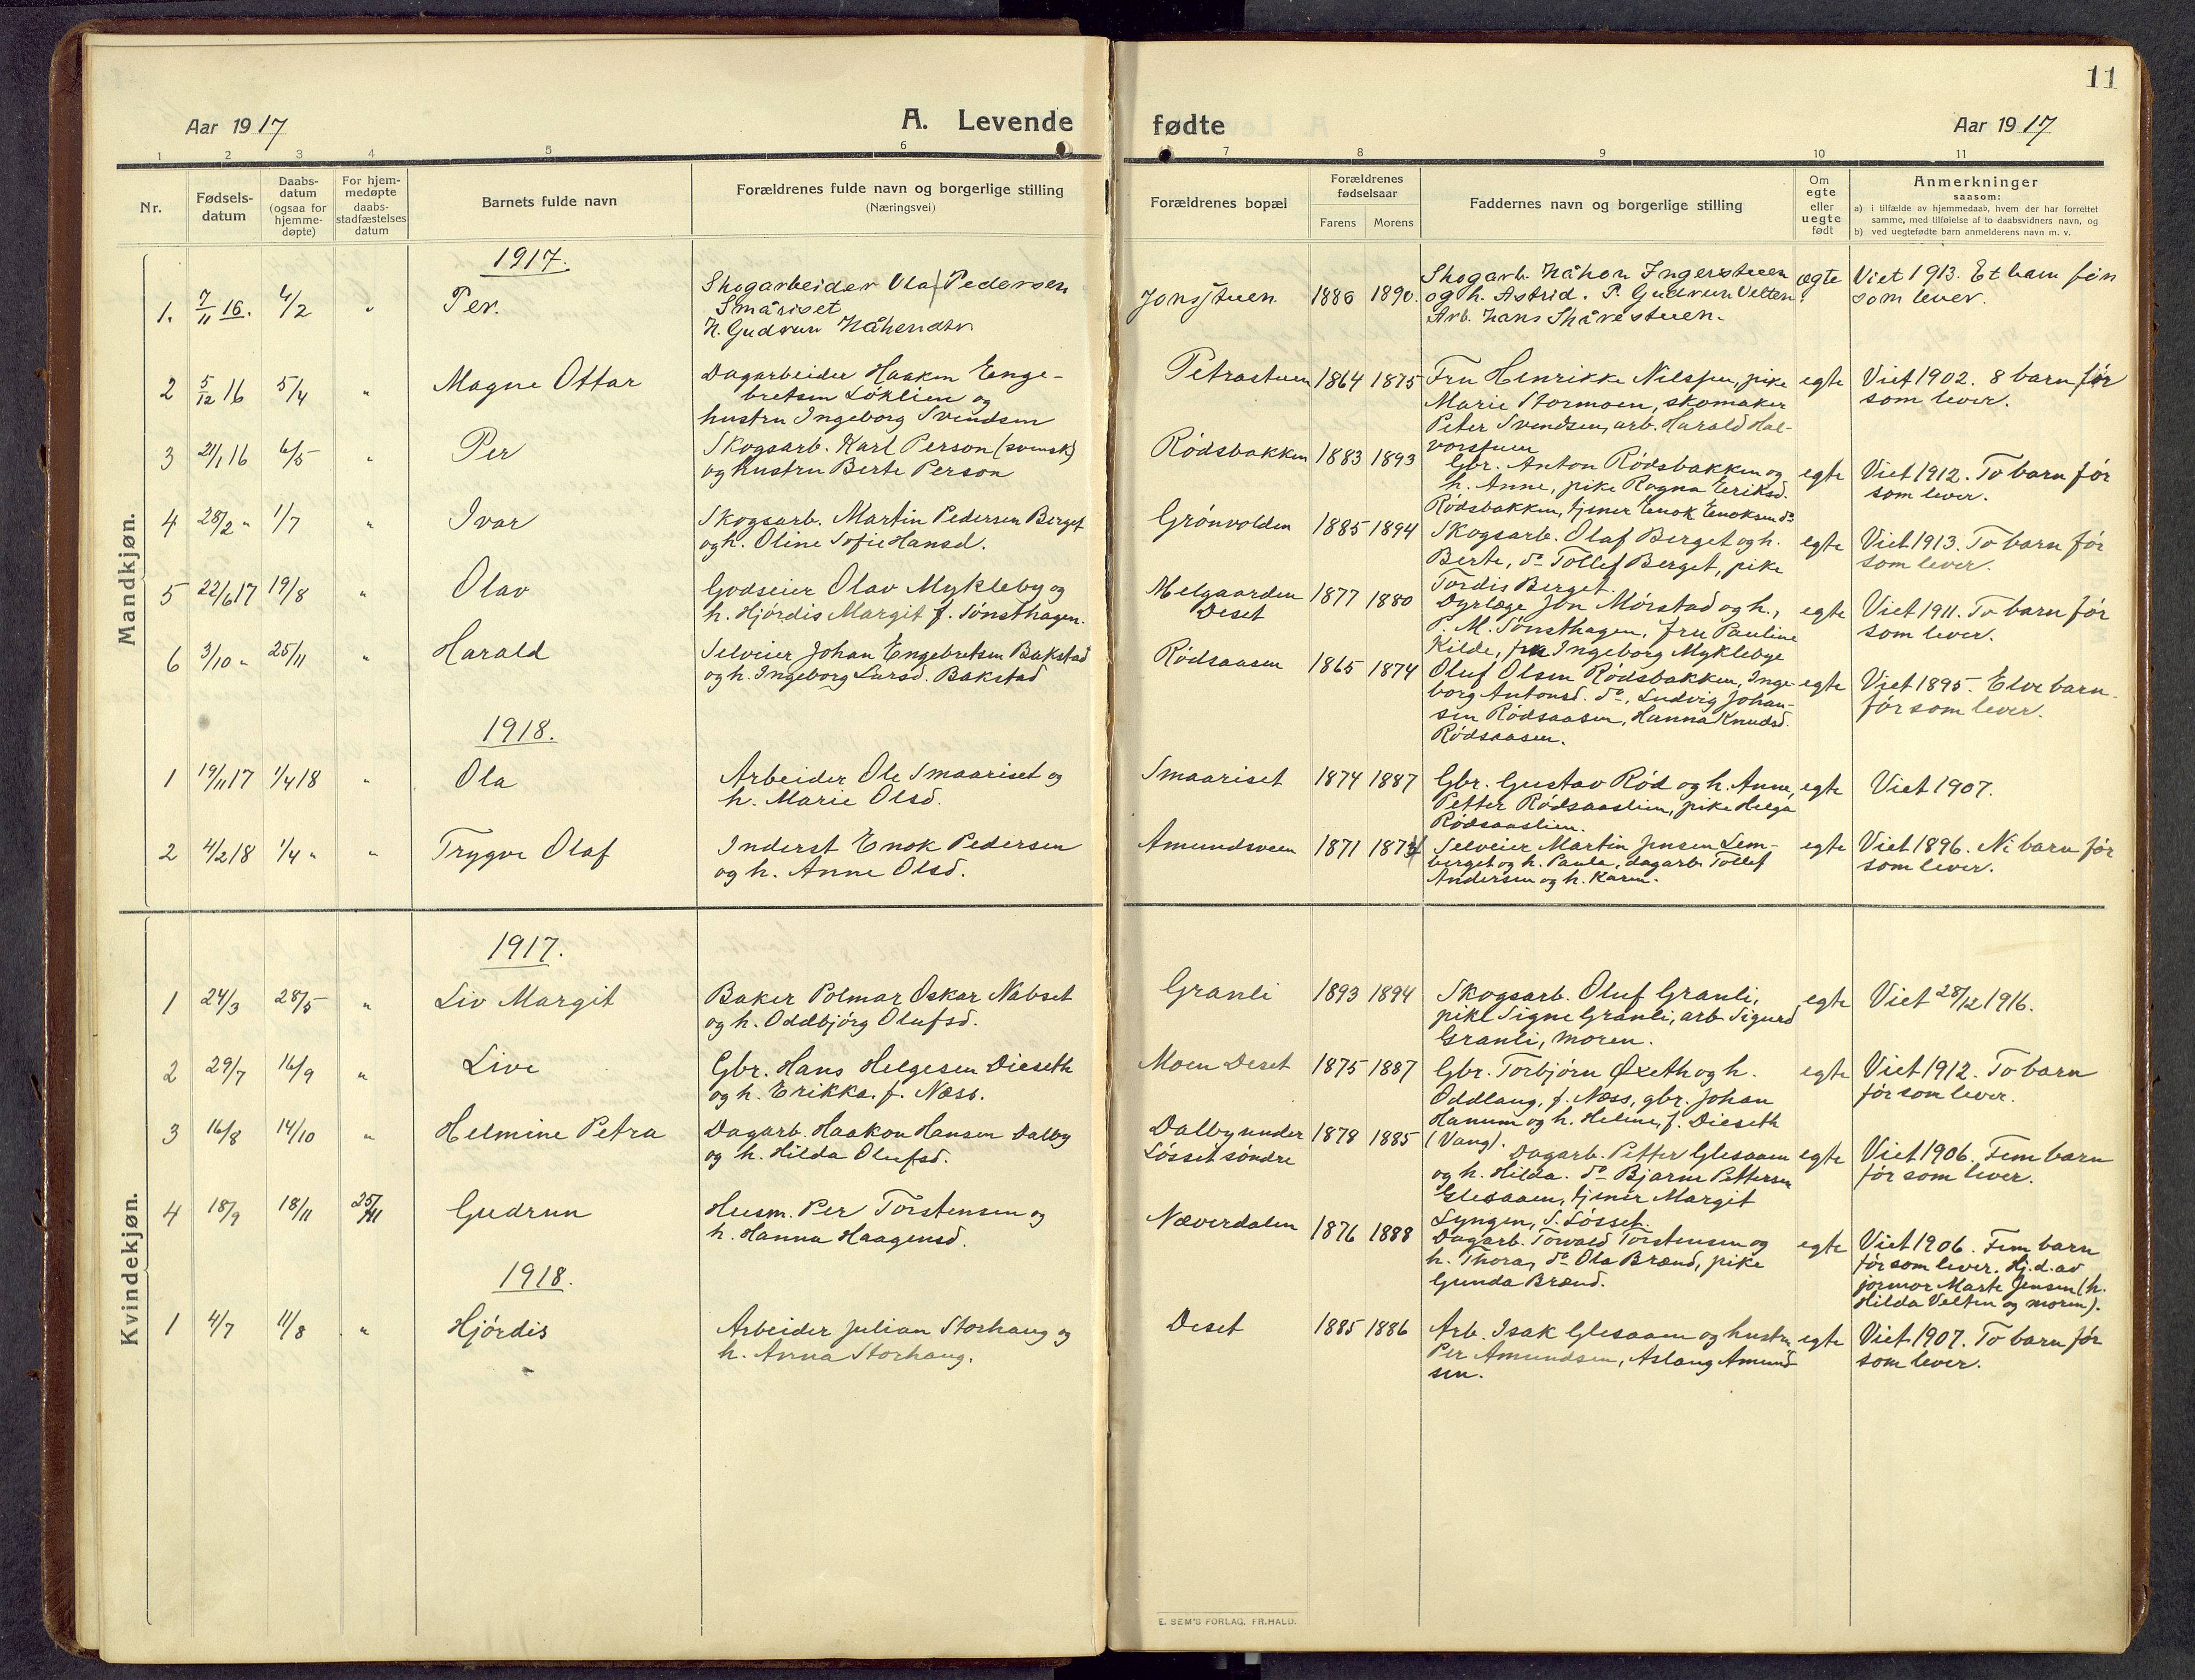 11
Aar 1917
A. Levende
fødte
Aar 1917
1 2 3 4 5 6 7 8 9 10 11
Nr.
Fødsels-
datum
Daabs-
datum
(ogsaa for
hjemme-
døpte)
For hjem-
medøpte
daabs-
stadfæstelses
datum
Barnets fulde navn
Forældrenes fulde navn og borgerlige stilling
(Næringsvei)
Forældrenes bopæl
Forældrenes
fødselsaar
Farens Morens
Faddernes navn og borgerlige stilling
Om
egte
eller
uegte
født
Anmerkninger
saasom:
a) i tilfælde av hjemmedaab, hvem der har forrettet
samme, med tilføielse af to daabsvidners navn, og
b) ved uegtefødte barn anmelderens navn m. v.
Mandkjøn.
1917.
1. 7/11 16. 4/2 " Per.
Skogarbeider Ola Pedersen
Småriset
H. Gudrun Håkensdtr
Jonsstuen 1886 1890.
Skogarb. Håkon Ingerstuen
og h. Astrid. P. Gudrun Velten.
Arb. Hans Skårestuen.
ægte
Viet 1913. Et barn før
som lever.
2 5/12 16 5/4 " Magne Ottar
Dagarbeider Haaken Enge-
bretsen Løklien og
hustru Ingeborg Svendsen
Petrastuen 1864 1875
Fru Henrikke Nilssen, pike
Marie Stormoen, skomaker
Peter Svendsen, arb. Harald Hal-
vorstuen
egte
Viet 1902. 8 barn før
som lever.
3 21/1 16 6/5 " Per
Skogsarb. Karl Person (svensk)
og hustru Berte Person
Rødsbakken 1883 1893
Gbr. Anton Rødsbakken og
h. Anne, pike Ragna Eriksd.
Rødsbakken, tjener Enok Enoksen do
egte
Viet 1912. To barn før
som lever.
4 28/2 " 1/7 " Ivar
Skogsarb. Martin Pedersen Berget
og h. Oline Sofie Hansd.
Grønvolden 1885 1894
Skogsarb. Olaf Berget og h.
Berte, do Tollef Berget, pike
Tordis Berget.
egte
Viet 1913. To barn før
som lever.
5 22/6 17 19/8 " Olav
Godseier Olav Mykleby og
h. Hjørdis Margit f. Sønsthagen.
Melgaarden
Deset 1877 1880
Dyrlæge Jon Mørstad og h.,
P. M. Sønsthagen, fru Pauline
Kilde, frk Ingeborg Myklebye
egte
Viet 1911. To barn før
som lever.
6 3/10 " 25/11 " Harald
Selveier Johan Engebretsen Bakstad
og h. Ingeborg Larsd. Bakstad
Rødsaasen 1865 1874
Oluf Olsen Rødsbakken, Inge-
borg Antonsd. do, Ludvig Johan-
sen Rødsaasen, Hanna Knudsd.
Rødsaasen.
egte
Viet 1895. Elve barn
før som lever.
1918.
1 19/11 17 1/4 18 " Ola
Arbeider Ole Smaariset og
h. Marie Olsd.
Smaariset 1874 1887
Gbr. Gustav Rød og h. Anne,
Petter Rødsaaslien, pike Helga
Rødsaaslien.
egte
Viet 1907.
2 4/2 18 1/4 " " Trygve Olaf
Inderst Enok Pedersen
og h. Anne Olsd.
Amundsveen 1871 1874
Selveier Martin Jensen Lem-
berget og h. Paula, dagarb. Tollef
Andersen og h. Karen.
egte
Viet 1896. Ni barn før
som lever.
Kvindekjøn.
1917.
1 24/3 28/5 " Liv Margit
Baker Polmar Oskar Nabset
og h. Oddbjørg Olufsd.
Granli 1893 1894
Skogsarb. Oluf Granli,
pike Signe Granli, arb. Sigurd
Granli, moren.
egte
Viet 28/12 1916.
2 29/7 16/9 " Live
Gbr. Hans Helgesen Dieseth
og h. Erikka. f. Næss.
Moen Deset 1875 1887
Gbr. Torbjørn Øxeth og h.
Oddlaug, f. Næss, gbr. Johan
Hanum og h. Heline, f. Dieseth
(Vang).
egte
Viet 1912. To barn
før som lever.
3 16/8 14/10 " Helmine Petra
Dagarb. Haakon Hansen Dalby
og h. Hilda Olufsd.
Dalby under
Løsset søndre 1878 1885
Dagarb. Petter Glesaaen
og h. Hilda. do Bjarne Pettersen
Glesaaen, tjener Margit
Lyngen, S. Løsset.
egte
Viet 1906. Fem barn
før som lever.
4 18/9 18/11 25/11 Gudrun
Husm. Per Torstensen og
h. Hanna Haagensd.
Næverdalen 1876 1888
Dagarb. Torvald Torstensen og
h. Thora, do Ola Brænd, pike
Gunda Brænd.
egte
Viet 1906. Fem barn
før som lever. Hj. d. av
jormor Marte Jensen (h.
Hilda Velten og moren).
1918.
1 4/7 11/8 " Hjørdis
Arbeider Julian Storhaug og
h. Anna Storhaug.
Deset 1885 1886
Arb. Isak Glesaaen og hustru
Per Amundsen, Aslaug Amund-
sen.
egte
Viet 1907. To barn før
som lever.
E. SEM'S FORLAG, FR.HALD.